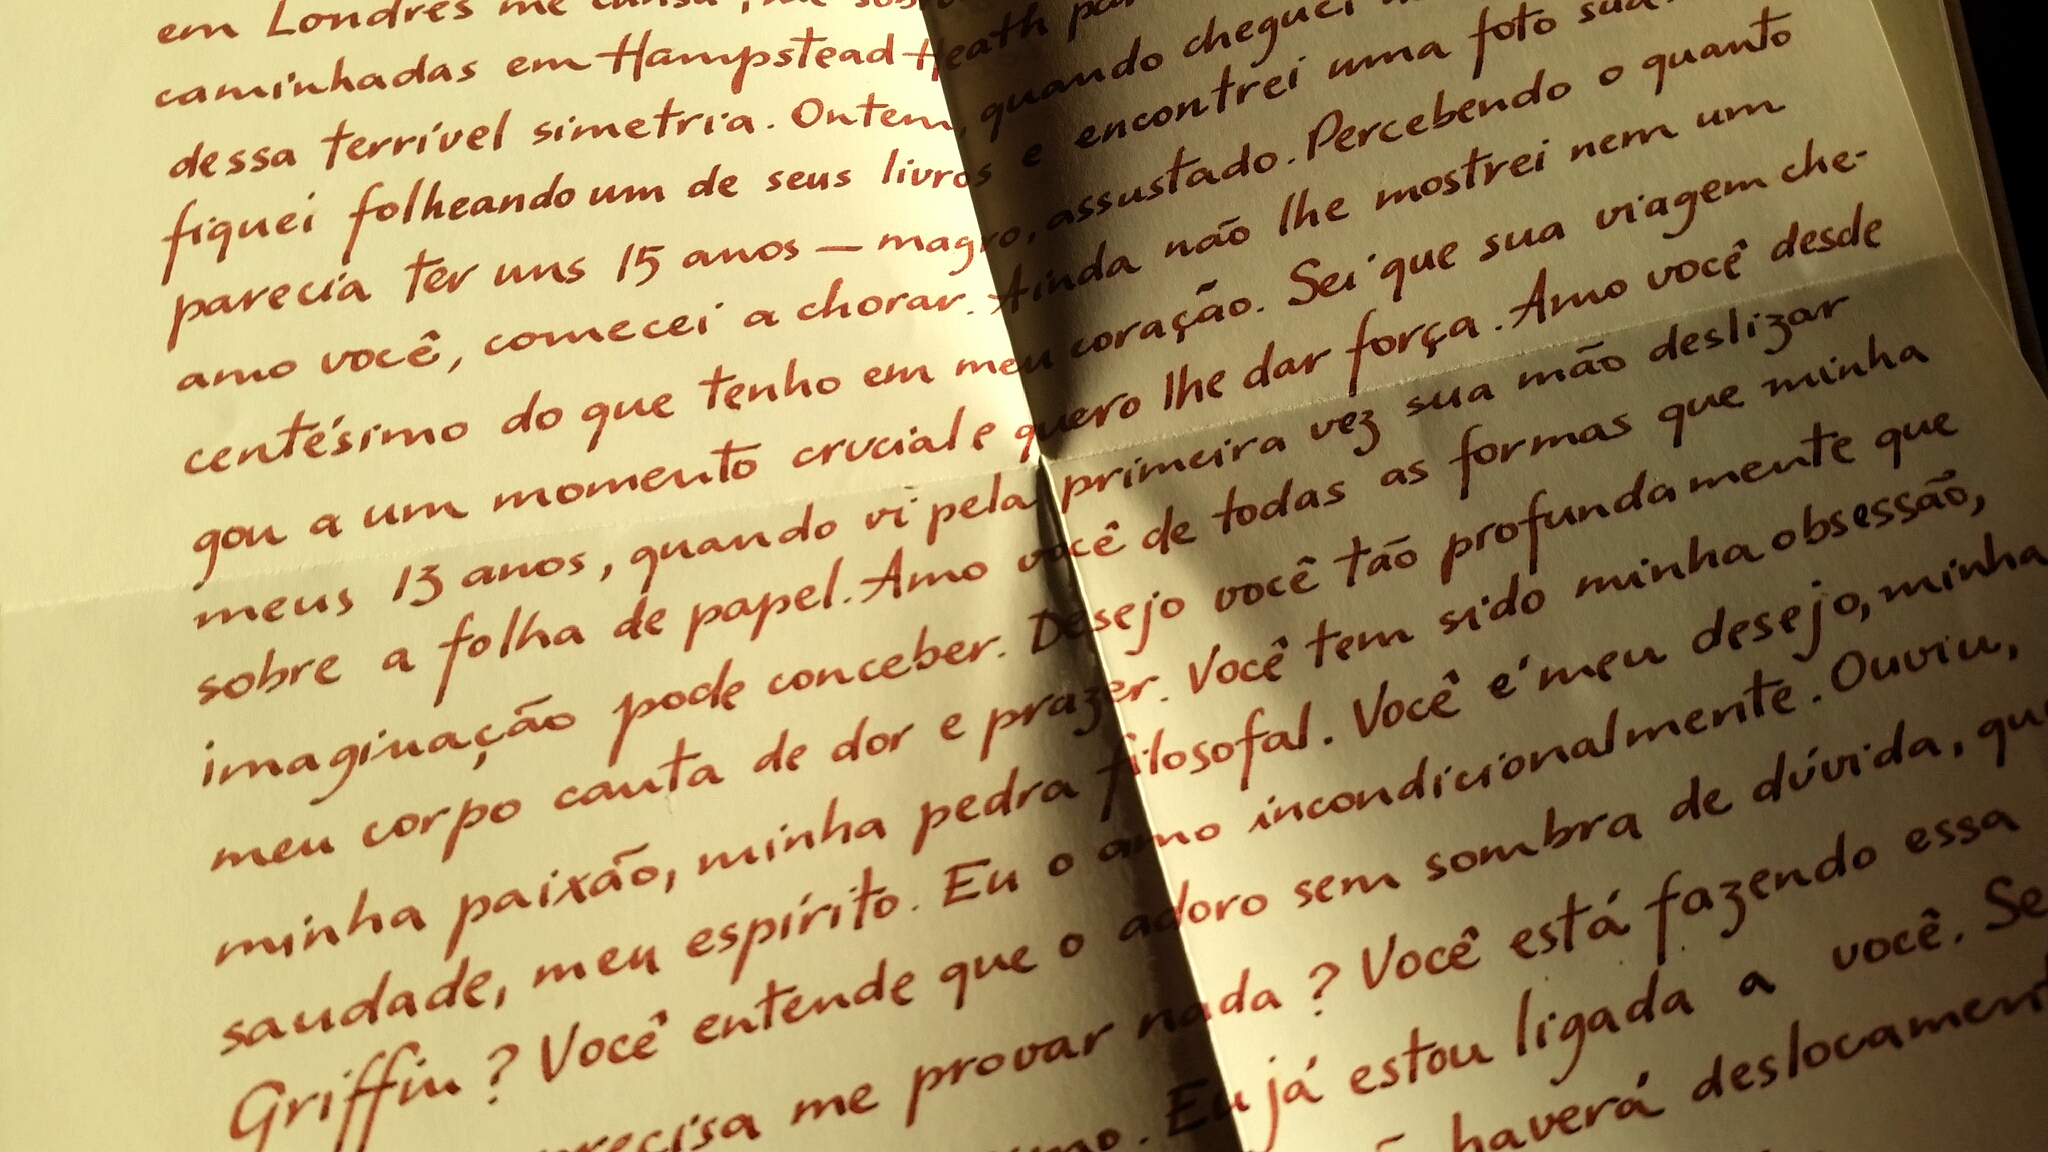 em Londres me
caminhadas em Hampstead Heath
dessa terrível simetria. Ontem, quando cheguei
fiquei folheando um de seus livros e encontrei uma foto sua.
parecia ter uns 15 anos — magro, assustado. Percebendo o quanto
amo você, comecei a chorar. Ainda não lhe mostrei nem um
centésimo do que tenho em meu coração. Sei que sua viagem che-
gou a um momento crucial e quero lhe dar força. Amo você desde
meus 13 anos, quando vi pela primeira vez sua mão deslizar
sobre a folha de papel. Amo você de todas as formas que minha
imaginação pode conceber. Desejo você tão profundamente que
meu corpo canta de dor e prazer. Você tem sido minha obsessão,
minha paixão, minha pedra filosofal. Você é meu desejo, minha
saudade, meu espírito. Eu o amo incondicionalmente. Ouviu,
Griffin? Você entende que o adoro sem sombra de dúvida, que
precisa me provar nada? Você está fazendo essa
Eu já estou ligada a você. Se
haverá